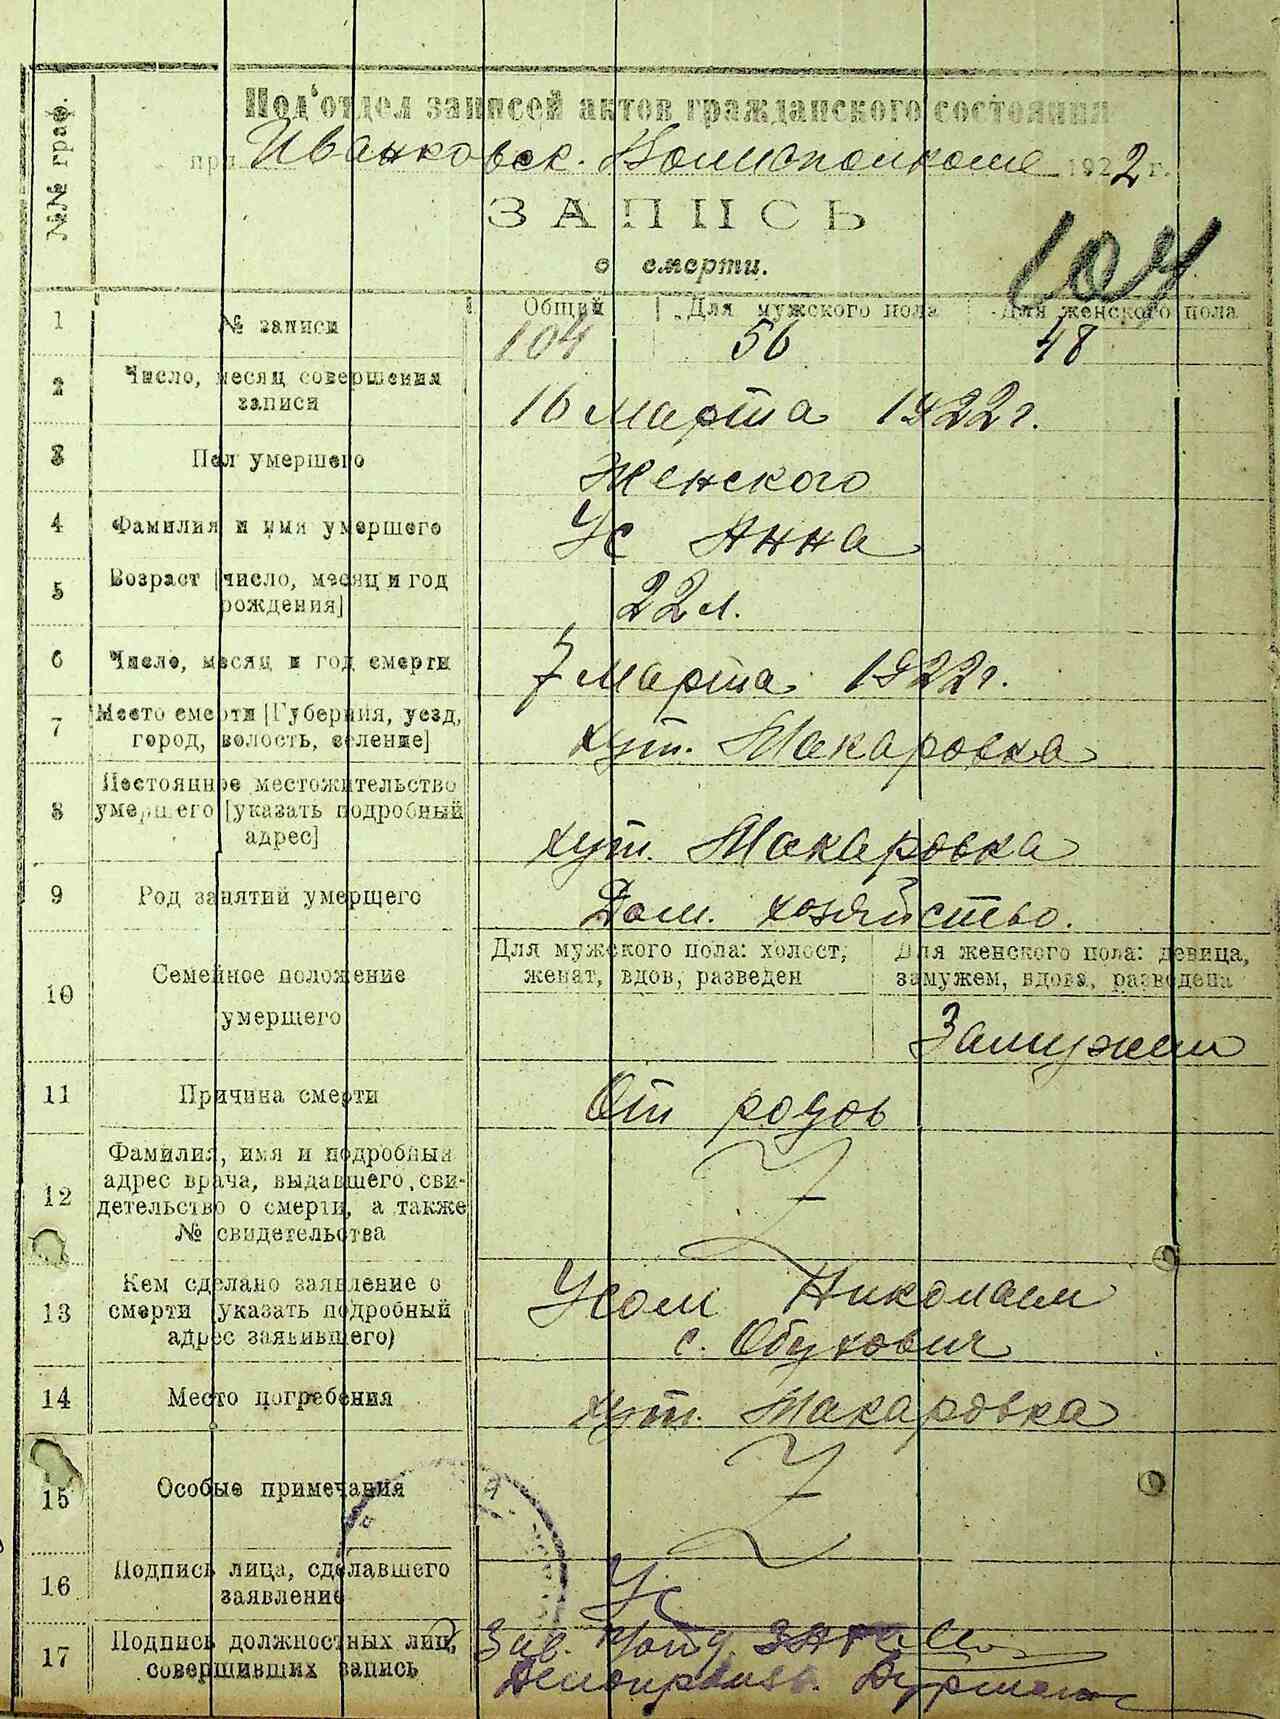 №№ граф.
Под'отдел записей актов гражданского состояния
при Иванковск. Волисполкоме 1922 г.
ЗАПИСЬ
о смерти.
104
1 № записи Общий Для мужского пола Для женского пола
104 56 48
2 Число, месяц совершения
записи
16 Марта 1922 г.
3 Пол умершего Женского
4 Фамилия и имя умершего Ус Анна
5 Возраст [число, месяц и год
рождения]
22 л.
6 Число, месяц и год смерти 7 Марта 1922 г.
7 Место смерти [Губерния, уезд,
город, волость, селение]
хут. Макаровка
8 Постоянное местожительство
умершего [указать подробный
адрес]
хут. Макаровка
9 Род занятий умершего Дом. хозяйство.
10 Семейное положение
умершего
Для мужского пола: холост,
женат, вдов, разведен
Для женского пола: девица,
замужем, вдова, разведена
Замужем
11 Причина смерти От родов
12 Фамилия, имя и подробный
адрес врача, выдавшего сви-
детельство о смерти, а также
№ свидетельства
13 Кем сделано заявление о
смерти (указать подробный
адрес заявившего)
Усом Николаем
с. Обухович
14 Место погребения хут. Макаровка
15 Особые примечания
16 Подпись лица, сделавшего
заявление
Ус
17 Подпись должностных лиц,
совершивших запись
Зав.
Делопроизв.